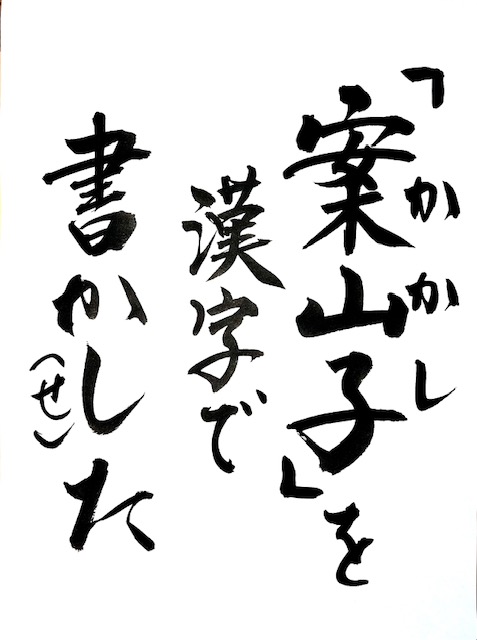 「案山子」を
かかし
漢字で
書かした
（せ）